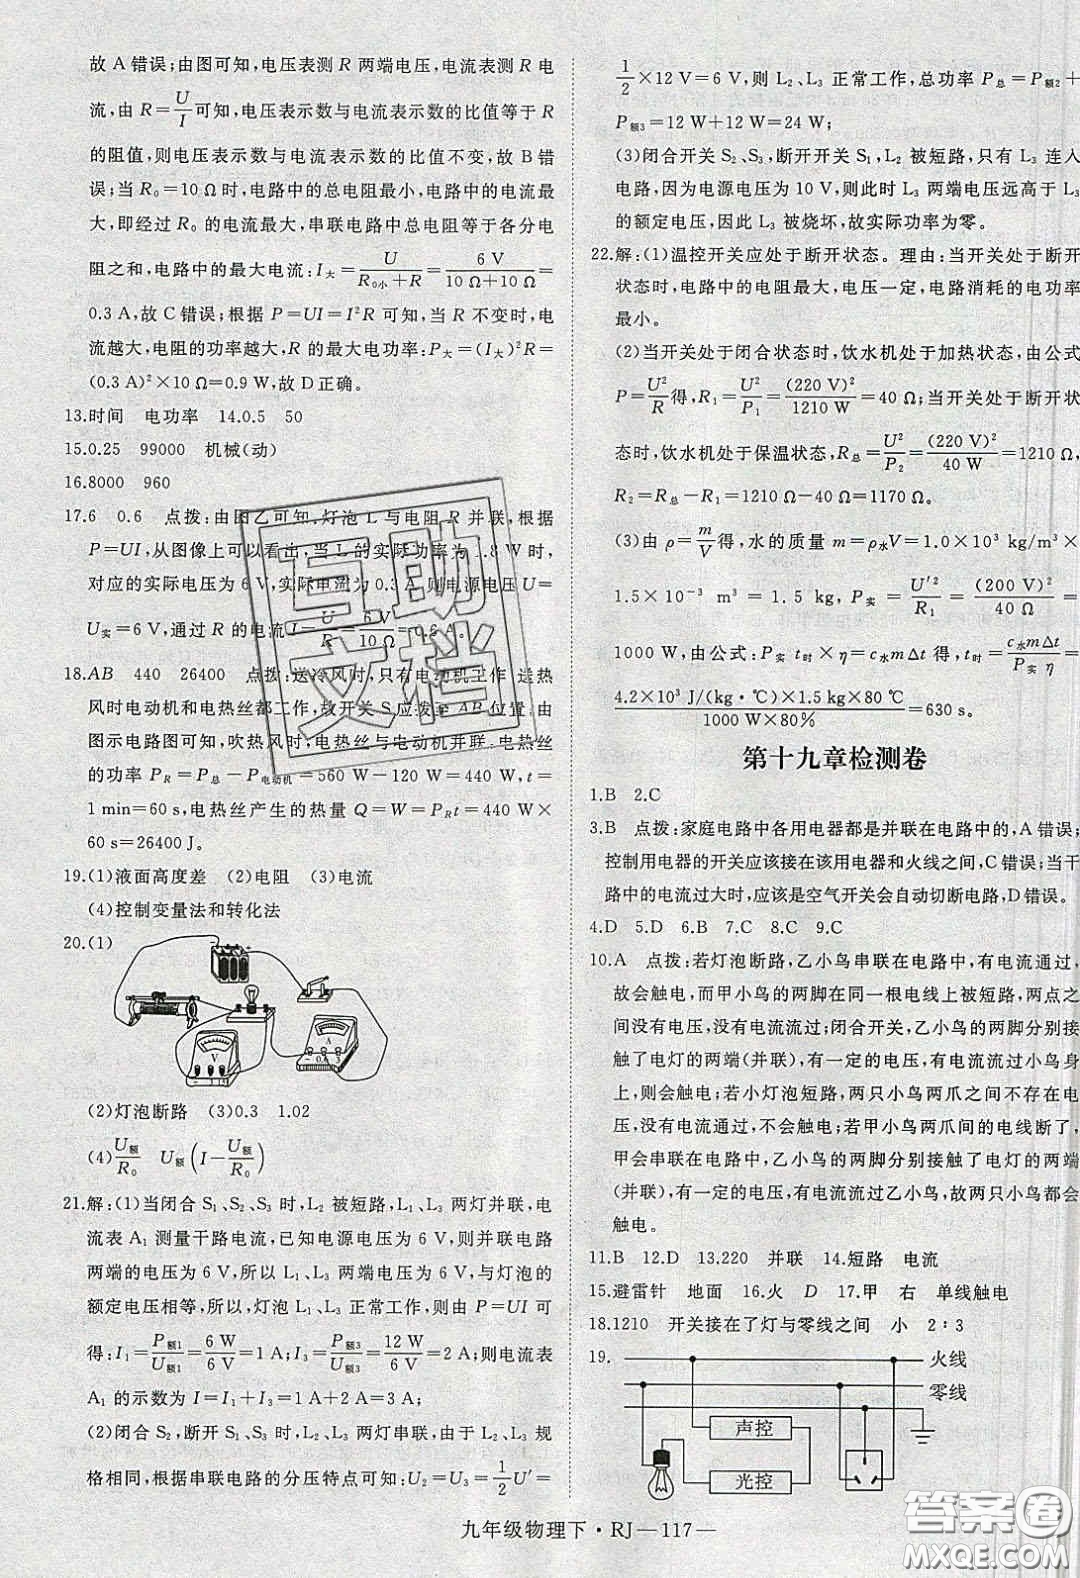 故 A 错误;由图可知,电压表测 R 两端电压,电流表测 R 电
流,由 R=U/I 可知,电压表示数与电流表示数的比值等于 R
的阻值,则电压表示数与电流表示数的比值不变,故 B 错
误;当 R₀=10 Ω 时,电路中的总电阻最小,电路中的电流最
大,即经过 R₀ 的电流最大,串联电路中总电阻等于各分电
阻之和,电路中的最大电流:I大=U/(R₀小+R)=6 V/(10 Ω+10 Ω)=
0.3 A,故 C 错误;根据 P=UI=I²R 可知,当 R 不变时,电
流越大,电阻的功率越大,R 的最大电功率:P大=(I大)²R=
(0.3 A)²×10 Ω=0.9 W,故 D 正确。
13.时间 电功率 14.0.5 50
15.0.25 99000 机械(动)
16.8000 960
17.6 0.6 点拨:由图乙可知,灯泡 L 与电阻 R 并联,根据
P=UI,从图像上可以看出,当 L 的实际功率为 1.8 W 时,
对应的实际电压为 6 V,实际电流为 0.3 A,则电源电压 U=
U实=6 V,通过 R 的电流 I=U/R=6 V/10 Ω=0.6 A。
18.AB 440 26400 点拨:送冷风时,只有电动机工作,送热
风时电动机和电热丝都工作,故开关 S 应拨至 AB 位置;由
图示电路图可知,吹热风时,电热丝与电动机并联,电热丝
的功率 P_R=P总-P电动机=560 W-120 W=440 W,t=
1 min=60 s,电热丝产生的热量 Q=W=P_Rt=440 W×
60 s=26400 J。
19.(1)液面高度差 (2)电阻 (3)电流
(4)控制变量法和转化法
20.(1)
V
A
(2)灯泡断路 (3)0.3 1.02
(4)U额/R₀ U额(I-U额/R₀)
21.解:(1)当闭合 S₁、S₂、S₃ 时,L₂ 被短路,L₁、L₃ 两灯并联,电
流表 A₁ 测量干路电流,已知电源电压为 6 V,则并联电路
两端的电压为 6 V,所以 L₁、L₃ 两端的电压为 6 V,与灯的
额定电压相等,所以,灯泡 L₁、L₃ 正常工作,则由 P=UI 可
得:I₁=P额1/U额1=6 W/6 V=1 A;I₃=P额3/U额3=12 W/6 V=2 A;则电流表
A₁ 的示数为 I=I₁+I₃=1 A+2 A=3 A;
(2)闭合 S₂,断开 S₁、S₃ 时,L₂、L₃ 两灯串联,由于 L₂、L₃ 规
格相同,根据串联电路的分压特点可知:U₂=U₃=1/2U′=
1/2×12 V=6 V,则 L₂、L₃ 正常工作,总功率 P总=P额2+
P额3=12 W+12 W=24 W;
(3)闭合开关 S₂、S₃,断开开关 S₁,L₂ 被短路,只有 L₃ 连入
电路,因为电源电压为 10 V,则此时 L₃ 两端电压远高于 L₃
的额定电压,因此 L₃ 被烧坏,故实际功率为零。
22.解:(1)温控开关应处于断开状态。理由:当开关处于断开
状态时,电路中的电阻最大,电压一定,电路消耗的电功率
最小。
(2)当开关处于闭合状态时,饮水机处于加热状态,由公式
P=U²/R得,R₁=U²/P₁=(220 V)²/1210 W=40 Ω;当开关处于断开状
态时,饮水机处于保温状态,R总=U²/P₂=(220 V)²/40 W=1210 Ω,
R₂=R总-R₁=1210 Ω-40 Ω=1170 Ω。
(3)由 ρ=m/V得,水的质量 m=ρ水V=1.0×10³ kg/m³×
1.5×10⁻³ m³=1.5 kg,P实=U′²/R₁=(200 V)²/40 Ω=
1000 W,由公式:P实 t时×η=c水mΔt 得,t时=c水mΔt/P实 η=
4.2×10³ J/(kg·℃)×1.5 kg×80 ℃/1000 W×80%=630 s。
第十九章检测卷
1.B 2.C
3.B 点拨:家庭电路中各用电器都是并联在电路中的,A 错误;
控制用电器的开关应该接在该用电器和火线之间,C 错误;当
路中的电流过大时,应该是空气开关会自动切断电路,D 错误。
4.D 5.D 6.B 7.C 8.C 9.C
10.A 点拨:若灯泡断路,乙小鸟串联在电路中,有电流通过,
故会触电,而甲小鸟的两脚在同一根电线上被短路,两点之
间没有电压,没有电流流过;闭合开关,乙小鸟的两脚分别接
触了电灯的两端(并联),有一定的电压,有电流流过它的身
上,则会触电;若小灯泡短路,两只小鸟两爪之间没有电
压,没有电流通过,不会触电;若甲小鸟两爪间的电线断了,
甲会串联在电路中,乙小鸟的两脚分别接触了电灯的两端
(并联),有一定的电压,有电流流过乙小鸟,故两只小鸟都会
触电。
11.B 12.D 13.220 并联 14.短路 电流
15.避雷针 地面 16.火 D 17.甲 右 单线触电
18.1210 开关接在了灯与零线之间 小 2∶3
19.
火线
零线
声控
光控
九年级物理下·RJ—117—
互助
文档
答案圈
MXQE.COM